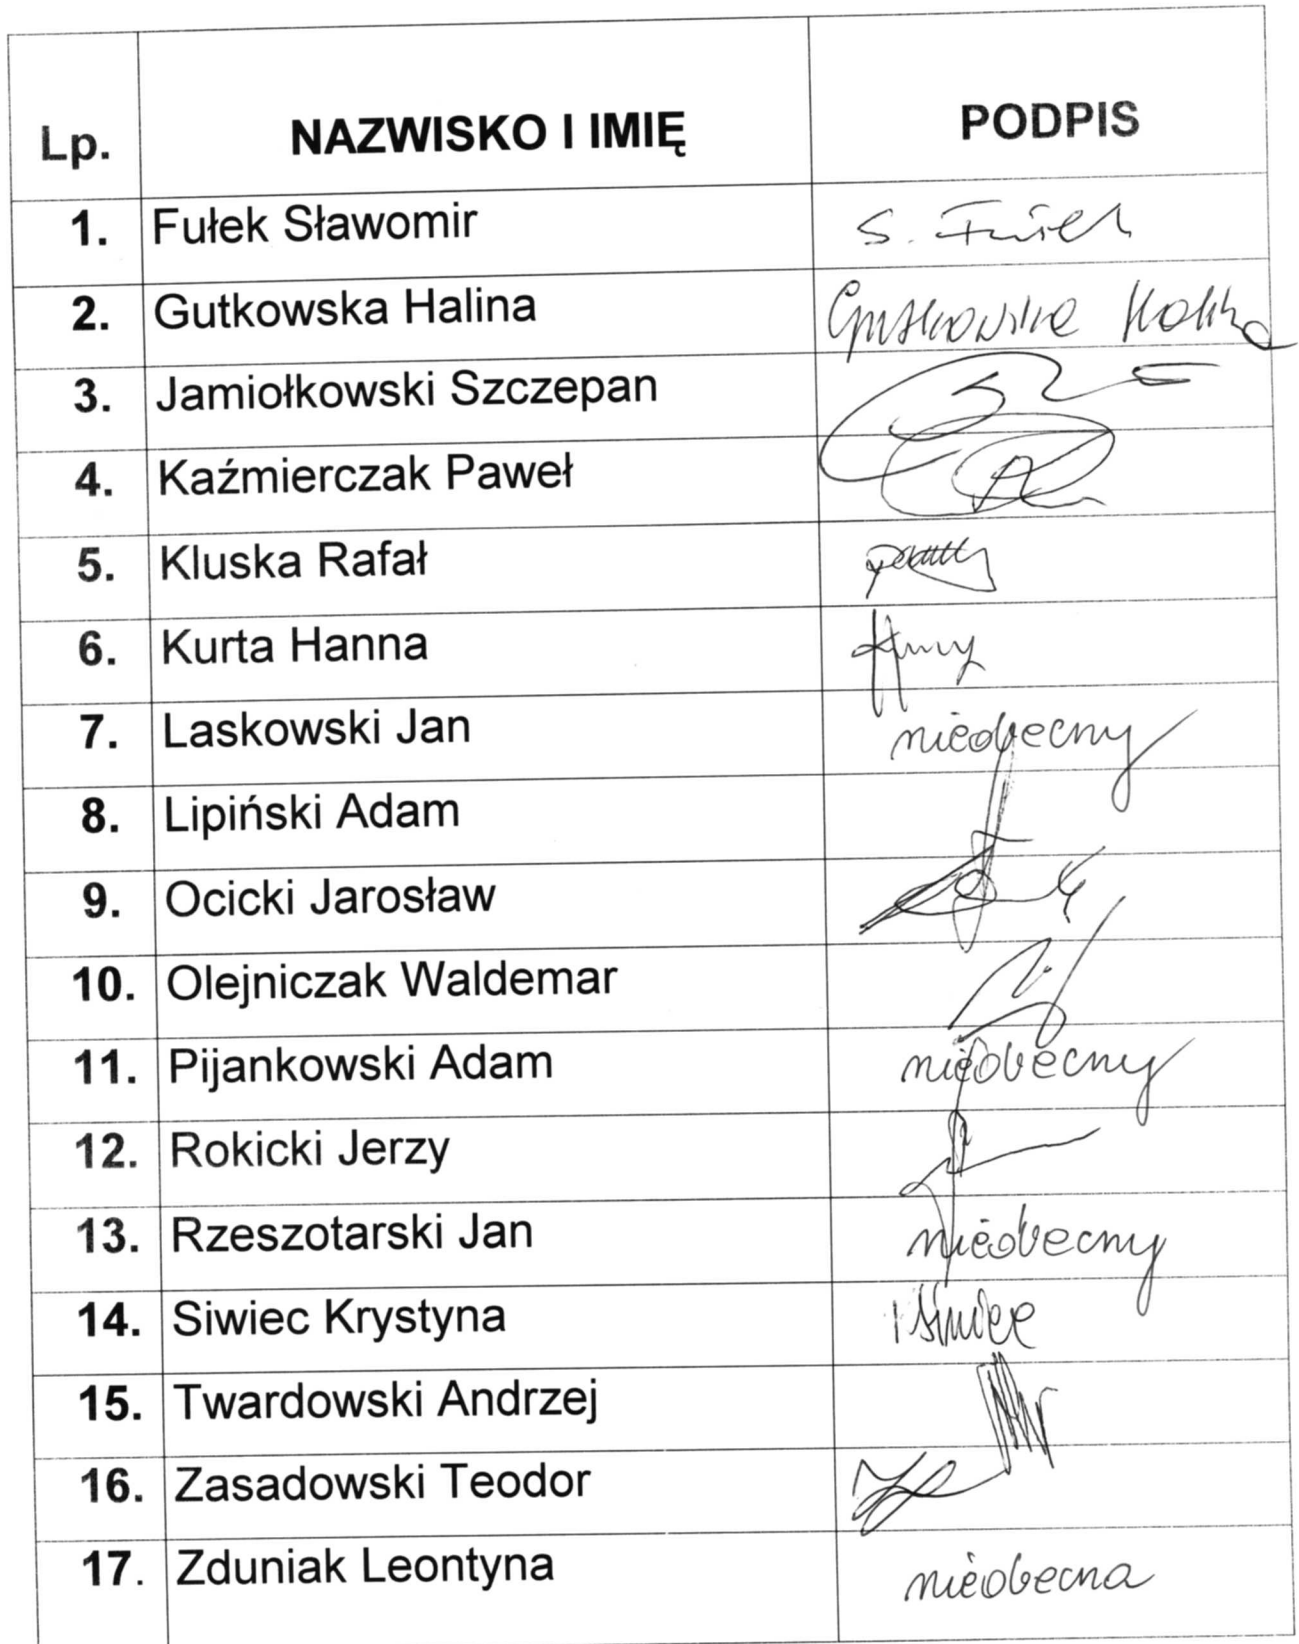 Lp. NAZWISKO I IMIĘ PODPIS
1. Fułek Sławomir S. Fułek
2. Gutkowska Halina Gutkowska Halina
3. Jamiołkowski Szczepan
4. Kaźmierczak Paweł
5. Kluska Rafał
6. Kurta Hanna
7. Laskowski Jan nieobecny
8. Lipiński Adam
9. Ocicki Jarosław
10. Olejniczak Waldemar
11. Pijankowski Adam nieobecny
12. Rokicki Jerzy
13. Rzeszotarski Jan nieobecny
14. Siwiec Krystyna Siwiec
15. Twardowski Andrzej
16. Zasadowski Teodor
17. Zduniak Leontyna nieobecna